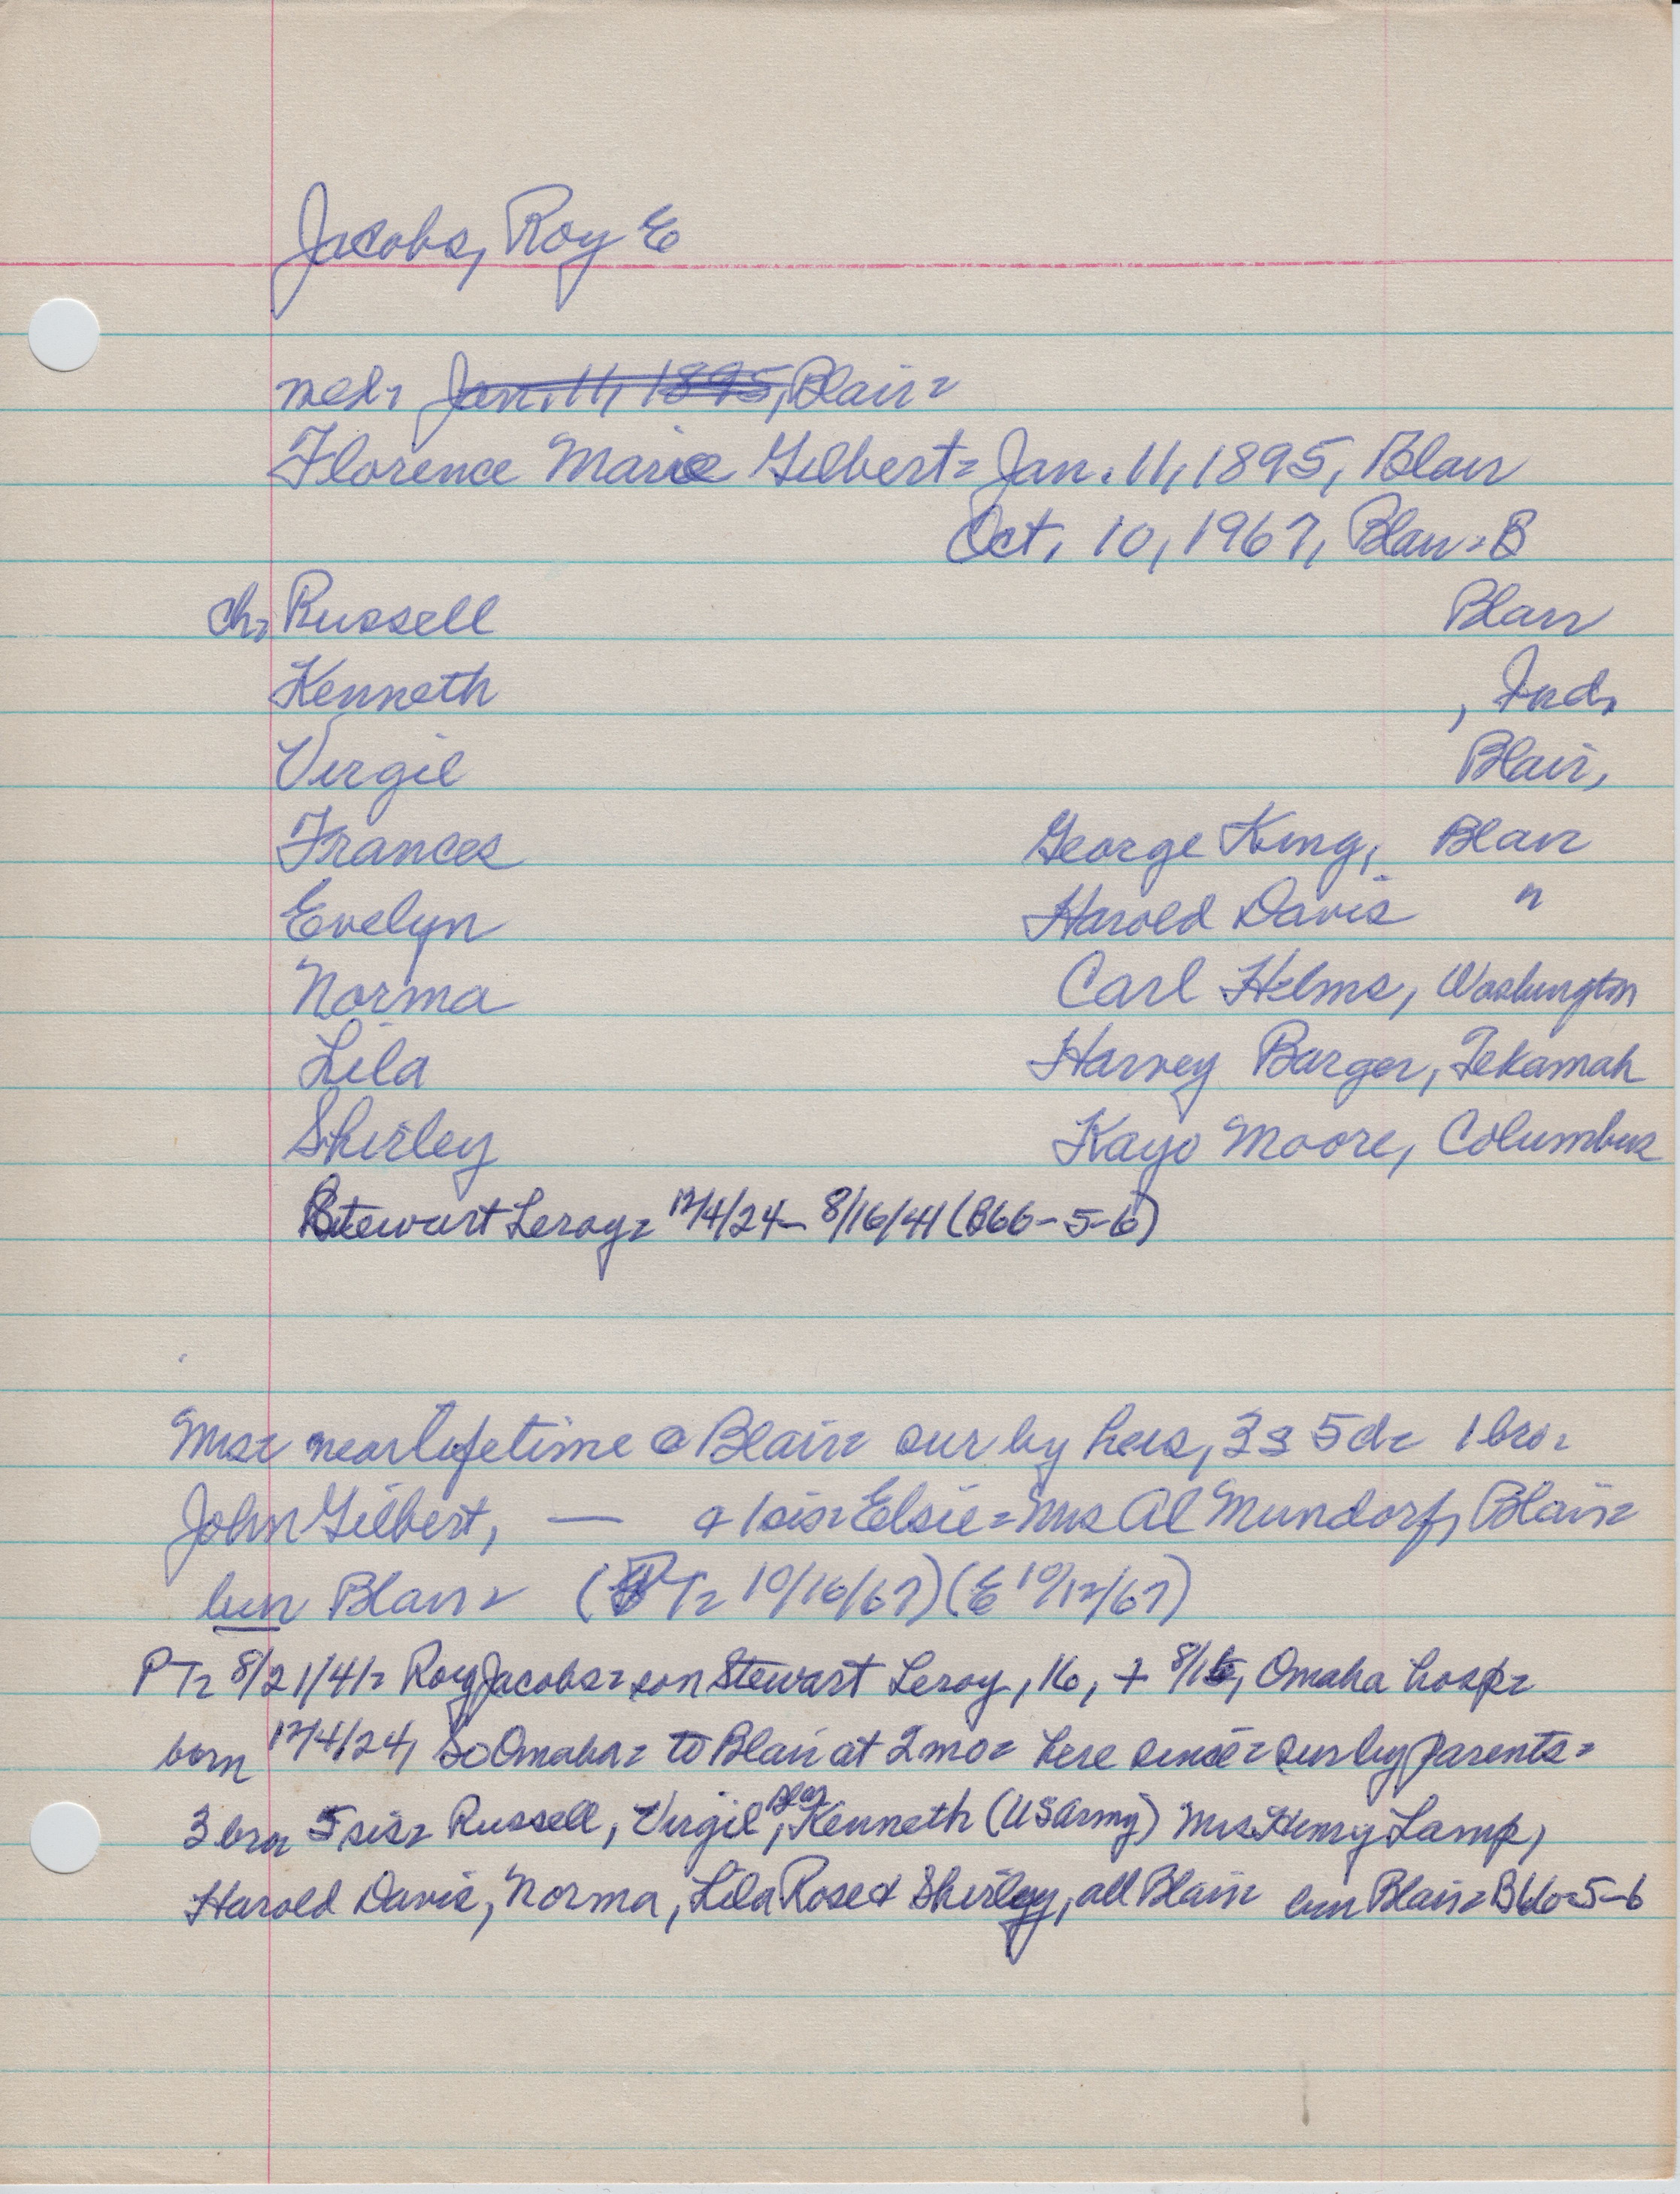 Jacobs, Roy E
med- Jan. 11, 1895, Blair-
Florence Marie Gilbert= Jan. 11, 1895, Blair
Oct. 10, 1967, Blair-B
ch- Russell Blair
Kenneth , Ind.
Virgil Blair,
Frances George King, Blair
Evelyn Harold Davis "
Norma Carl Helms, Washington
Lila Harvey Barger, Tekamah
Shirley Kayo Moore, Columbus
Stewart Leroy= 12/4/24- 8/16/41 (B66-5-6)
Mrs- near lifetime @ Blair- sur by hus, 3s 5d- 1 bro-
John Gilbert, — & 1 sis- Elsie= Mrs Al Mundorf, Blair-
bur Blair- (PT- 10/16/67) (E 10/12/67)
PT- 8/21/41- Roy Jacobs= son Stewart Leroy, 16, + 8/16, Omaha hosp-
born 12/4/24, So Omaha= to Blair at 2 mo= here since= sur by parents=
3 bro- 5 sis- Russell, Virgil, Blair, Kenneth (US Army) Mrs Henry Lamp,
Harold Davis, Norma, Lila Rose & Shirley, all Blair- bur Blair- B66-5-6